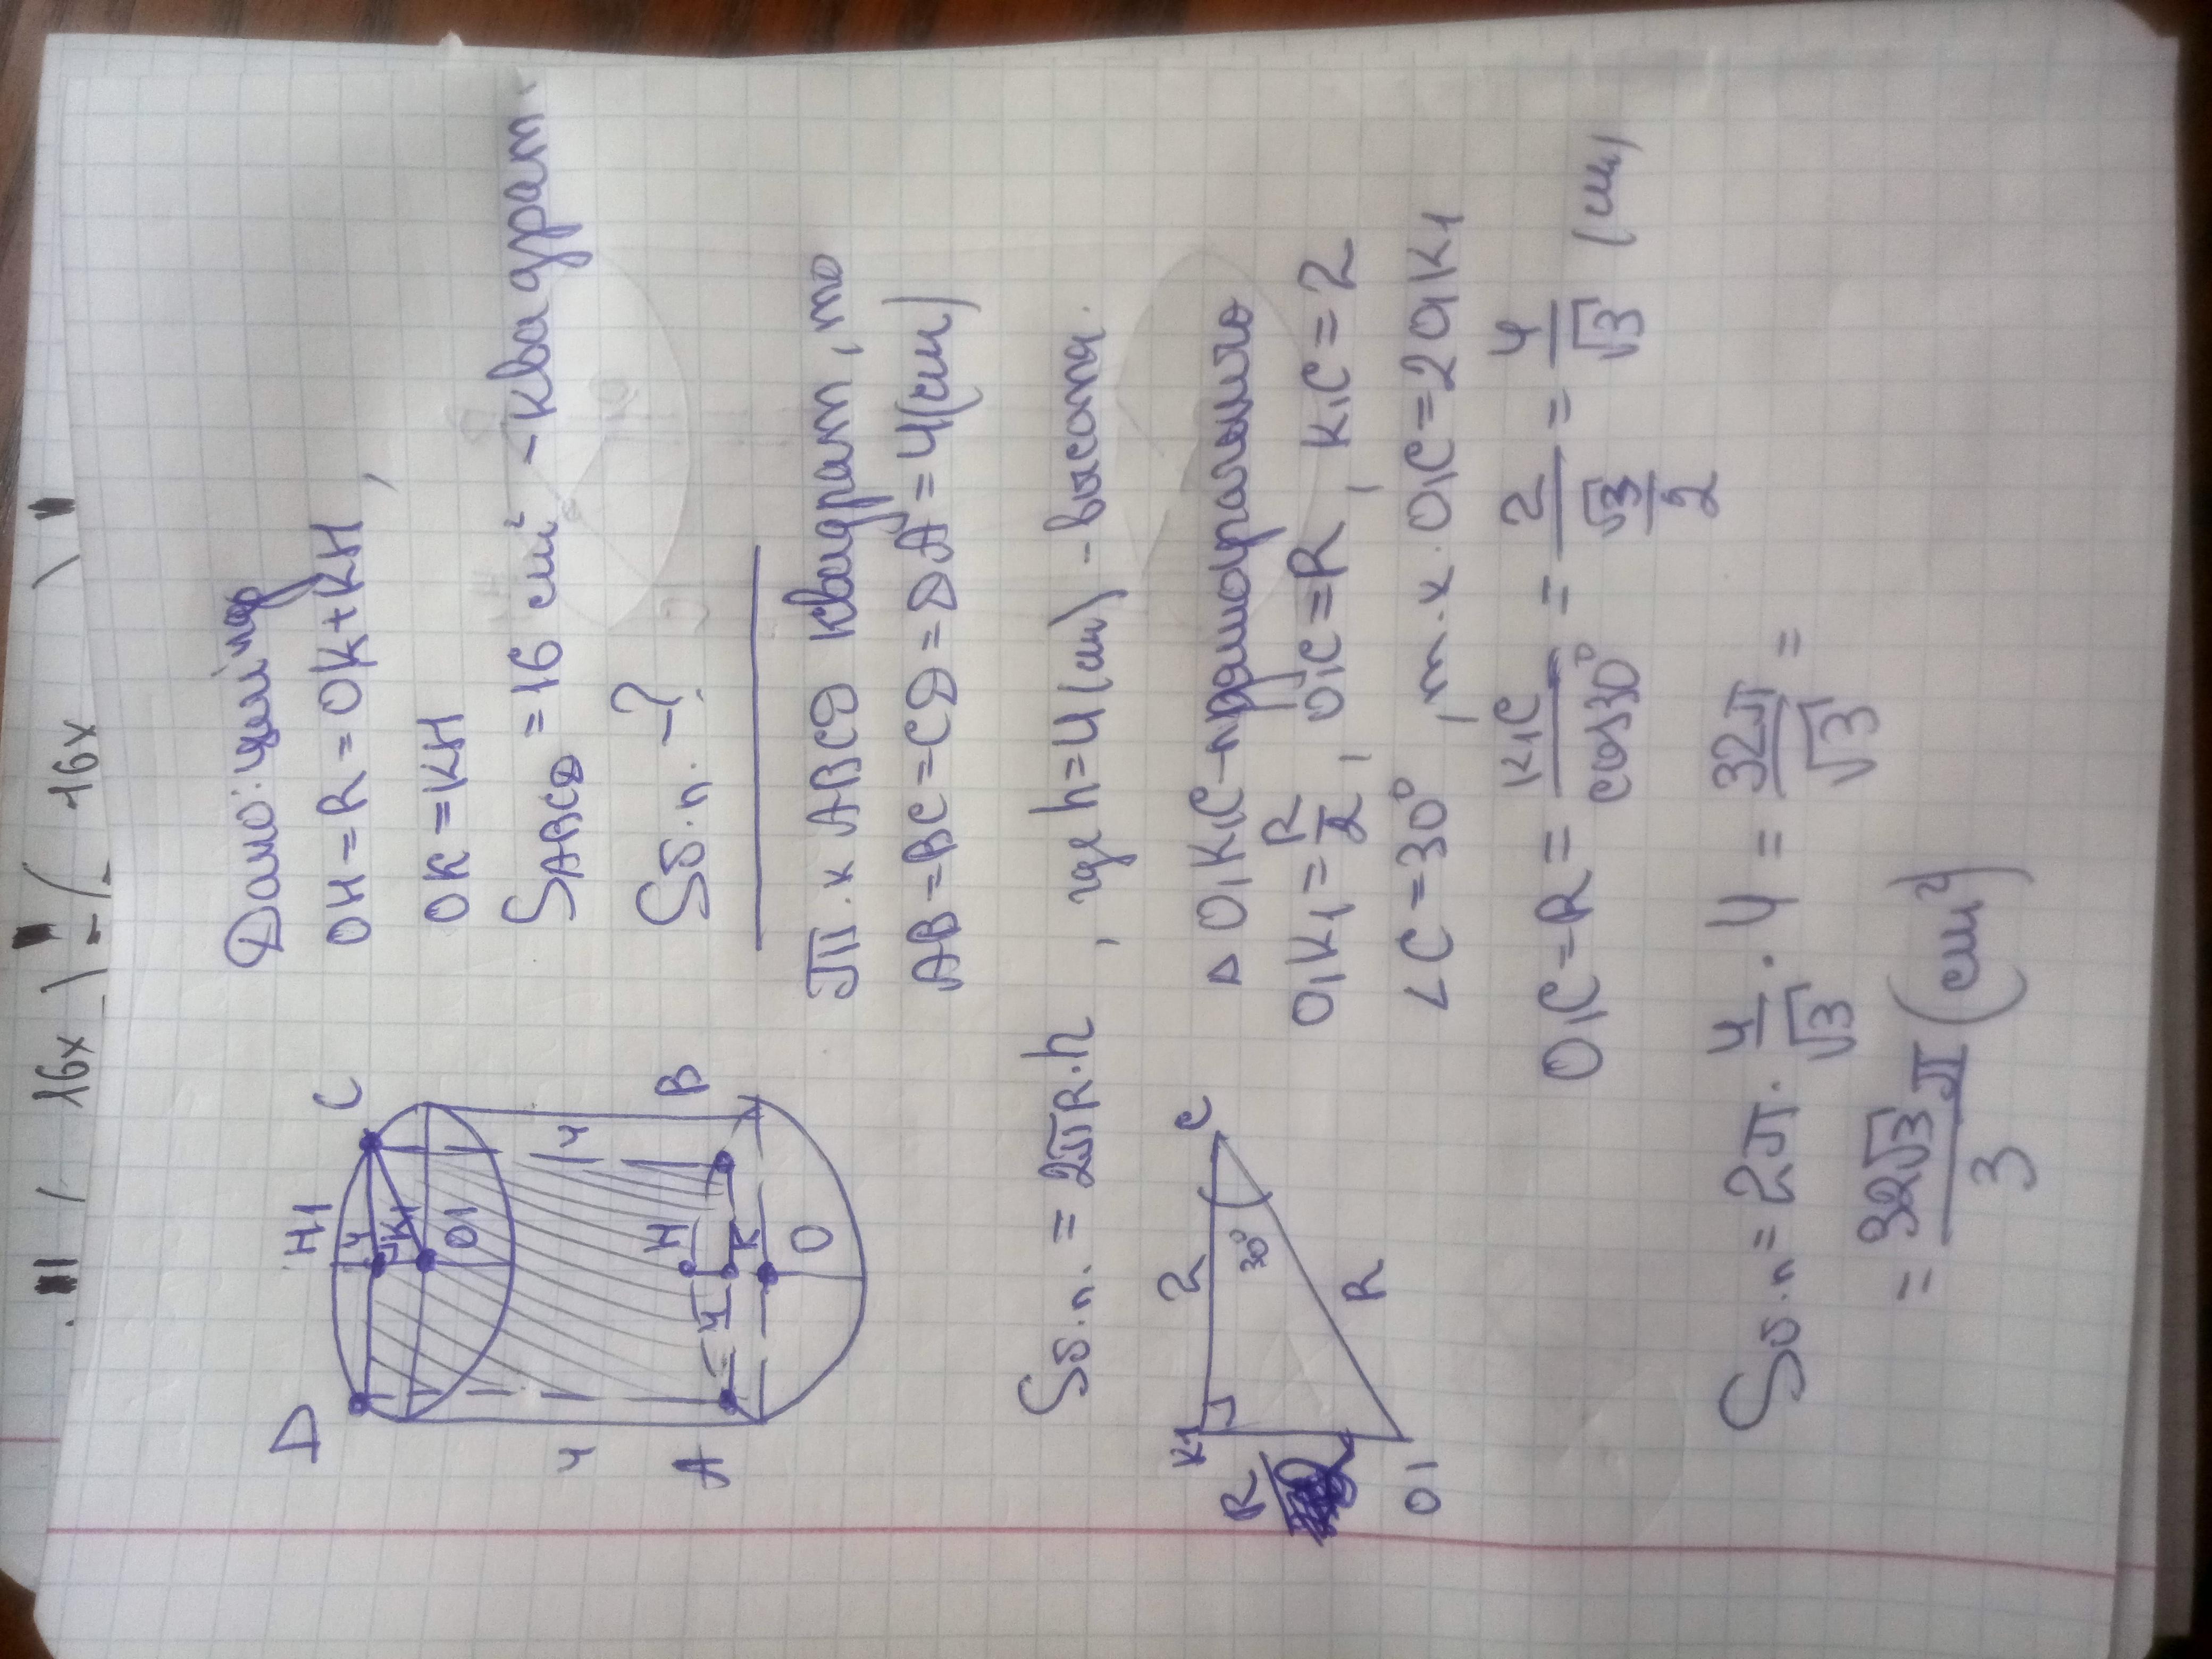 16x 16x
Дано: цилиндр
OH = R = OK + KH,
OK = KH
SABCD = 16 см² - квадрат.
Sб.п. - ?
D H1 C
4 K1 O1
4 4
A 4 H K B
O
Т.к ABCD квадрат, то
AB = BC = CD = DA = 4 (см)
Sб.п. = 2πR·h, где h = 4 (см) - высота.
K1 2 C
30°
R R
O1
△ O1K1C - прямоугольно
O1K1 = R/2, O1C = R, K1C = 2
∠C = 30°, т.к. O1C = 2O1K1
O1C = R = K1C/cos30° = 2/(√3/2) = 4/√3 (см)
Sб.п = 2π · 4/√3 · 4 = 32π/√3 =
= 32√3/3 π (см²)